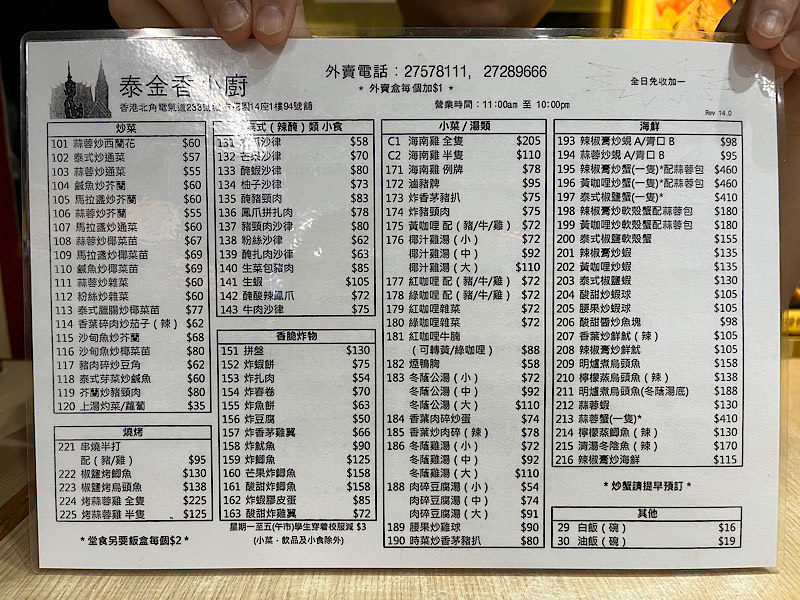 泰金香小廚
香港北角電氣道233號城市花園14座1樓94號舖
外賣電話：27578111, 27289666
* 外賣盒每個加$1 *
營業時間：11:00am 至 10:00pm
全日免收加一
Rev 14.0
炒菜
101 蒜蓉炒西蘭花 $60
102 泰式炒通菜 $57
103 蒜蓉炒通菜 $55
104 鹹魚炒芥蘭 $60
105 馬拉盞炒芥蘭 $60
106 蒜蓉炒芥蘭 $55
107 馬拉盞炒通菜 $60
108 蒜蓉炒椰菜苗 $67
109 馬拉盞炒椰菜苗 $69
110 鹹魚炒椰菜苗 $69
111 蒜蓉炒雜菜 $60
112 粉絲炒雜菜 $60
113 泰式臘腸炒椰菜苗 $77
114 香葉碎肉炒茄子 ( 辣 ) $62
115 沙甸魚炒芥蘭 $68
116 沙甸魚炒椰菜苗 $80
117 豬肉碎炒豆角 $62
118 泰式芽菜炒鹹魚 $60
119 芥蘭炒豬頸肉 $80
120 上湯灼菜/蘿蔔 $35
燒烤
221 串燒半打
配 ( 豬/雞 ) $95
222 椒鹽烤鯽魚 $130
223 椒鹽烤烏頭魚 $138
224 烤蒜蓉雞 全隻 $225
225 烤蒜蓉雞 半隻 $125
* 堂食另要飯盒每個$2 *
泰式 ( 辣醃 ) 類 小食
131 瓜沙律 $58
132 芒果沙律 $70
133 醃蝦沙律 $80
134 柚子沙律 $73
135 醃豬頸肉 $83
136 鳳爪拼扎肉 $78
137 豬頸肉沙律 $80
138 粉絲沙律 $62
139 醃扎肉沙律 $63
140 生菜包豬肉 $85
141 生蝦 $105
142 醃酸辣鳳爪 $72
143 牛肉沙律 $75
香脆炸物
151 拼盤 $130
152 炸蝦餅 $75
153 炸扎肉 $54
154 炸春卷 $70
155 炸魚餅 $63
156 炸豆腐 $50
157 炸香茅雞翼 $66
158 炸魷魚 $90
159 炸鯽魚 $125
160 芒果炸鯽魚 $158
161 酸甜炸鯽魚 $158
162 炸蝦膠皮蛋 $85
163 酸甜炸雞翼 $72
星期一至五(午市)學生穿着校服減 $3
(小菜﹐飲品及小食除外)
小菜 / 湯類
C1 海南雞 全隻 $205
C2 海南雞 半隻 $110
171 海南雞 例牌 $78
172 滷豬脾 $95
173 炸香茅豬扒 $75
174 炸豬頸肉 $75
175 黃咖哩 配 ( 豬/牛/雞 ) $72
176 椰汁雞湯 ( 小 ) $72
椰汁雞湯 ( 中 ) $92
椰汁雞湯 ( 大 ) $110
177 紅咖哩 配 ( 豬/牛/雞 ) $72
178 綠咖哩 配 ( 豬/牛/雞 ) $72
179 紅咖哩雜菜 $72
180 綠咖哩雜菜 $72
181 紅咖哩牛腩
( 可轉黃/綠咖哩 ) $88
182 煙鴨胸 $58
183 冬蔭公湯 ( 小 ) $72
冬蔭公湯 ( 中 ) $92
冬蔭公湯 ( 大 ) $110
184 香葉肉碎炒蛋 $74
185 香葉炒肉碎 ( 辣 ) $78
186 冬蔭雞湯 ( 小 ) $72
冬蔭雞湯 ( 中 ) $92
冬蔭雞湯 ( 大 ) $110
188 肉碎豆腐湯 ( 小 ) $54
肉碎豆腐湯 ( 中 ) $74
肉碎豆腐湯 ( 大 ) $91
189 腰果炒雞球 $90
190 時菜炒香茅豬扒 $80
海鮮
193 辣椒膏炒蜆 A/青口 B $98
194 蒜蓉炒蜆 A/青口 B $95
195 辣椒膏炒蟹(一隻)*配蒜蓉包 $460
196 黃咖哩炒蟹(一隻)*配蒜蓉包 $460
197 泰式椒鹽蟹(一隻)* $410
198 辣椒膏炒軟殼蟹配蒜蓉包 $180
199 黃咖哩炒軟殼蟹配蒜蓉包 $180
200 泰式椒鹽軟殼蟹 $155
201 辣椒膏炒蝦 $135
202 黃咖哩炒蝦 $135
203 泰式椒鹽蝦 $130
204 酸甜炒蝦球 $105
205 腰果炒蝦球 $105
206 酸甜醬炒魚塊 $98
207 香葉炒鮮魷 ( 辣 ) $105
208 辣椒膏炒鮮魷 $105
209 明爐煮烏頭魚 $158
210 檸檬蒸烏頭魚 ( 辣 ) $138
211 明爐煮烏頭魚(冬蔭湯底) $188
212 蒜蓉蝦 $130
213 蒜蓉蟹(一隻)* $410
214 檸檬蒸鯽魚 ( 辣 ) $130
215 清湯冬陰魚 ( 辣 ) $170
216 辣椒膏炒海鮮 $115
* 炒蟹請提早預訂 *
其他
29 白飯 ( 碗 ) $16
30 油飯 ( 碗 ) $19